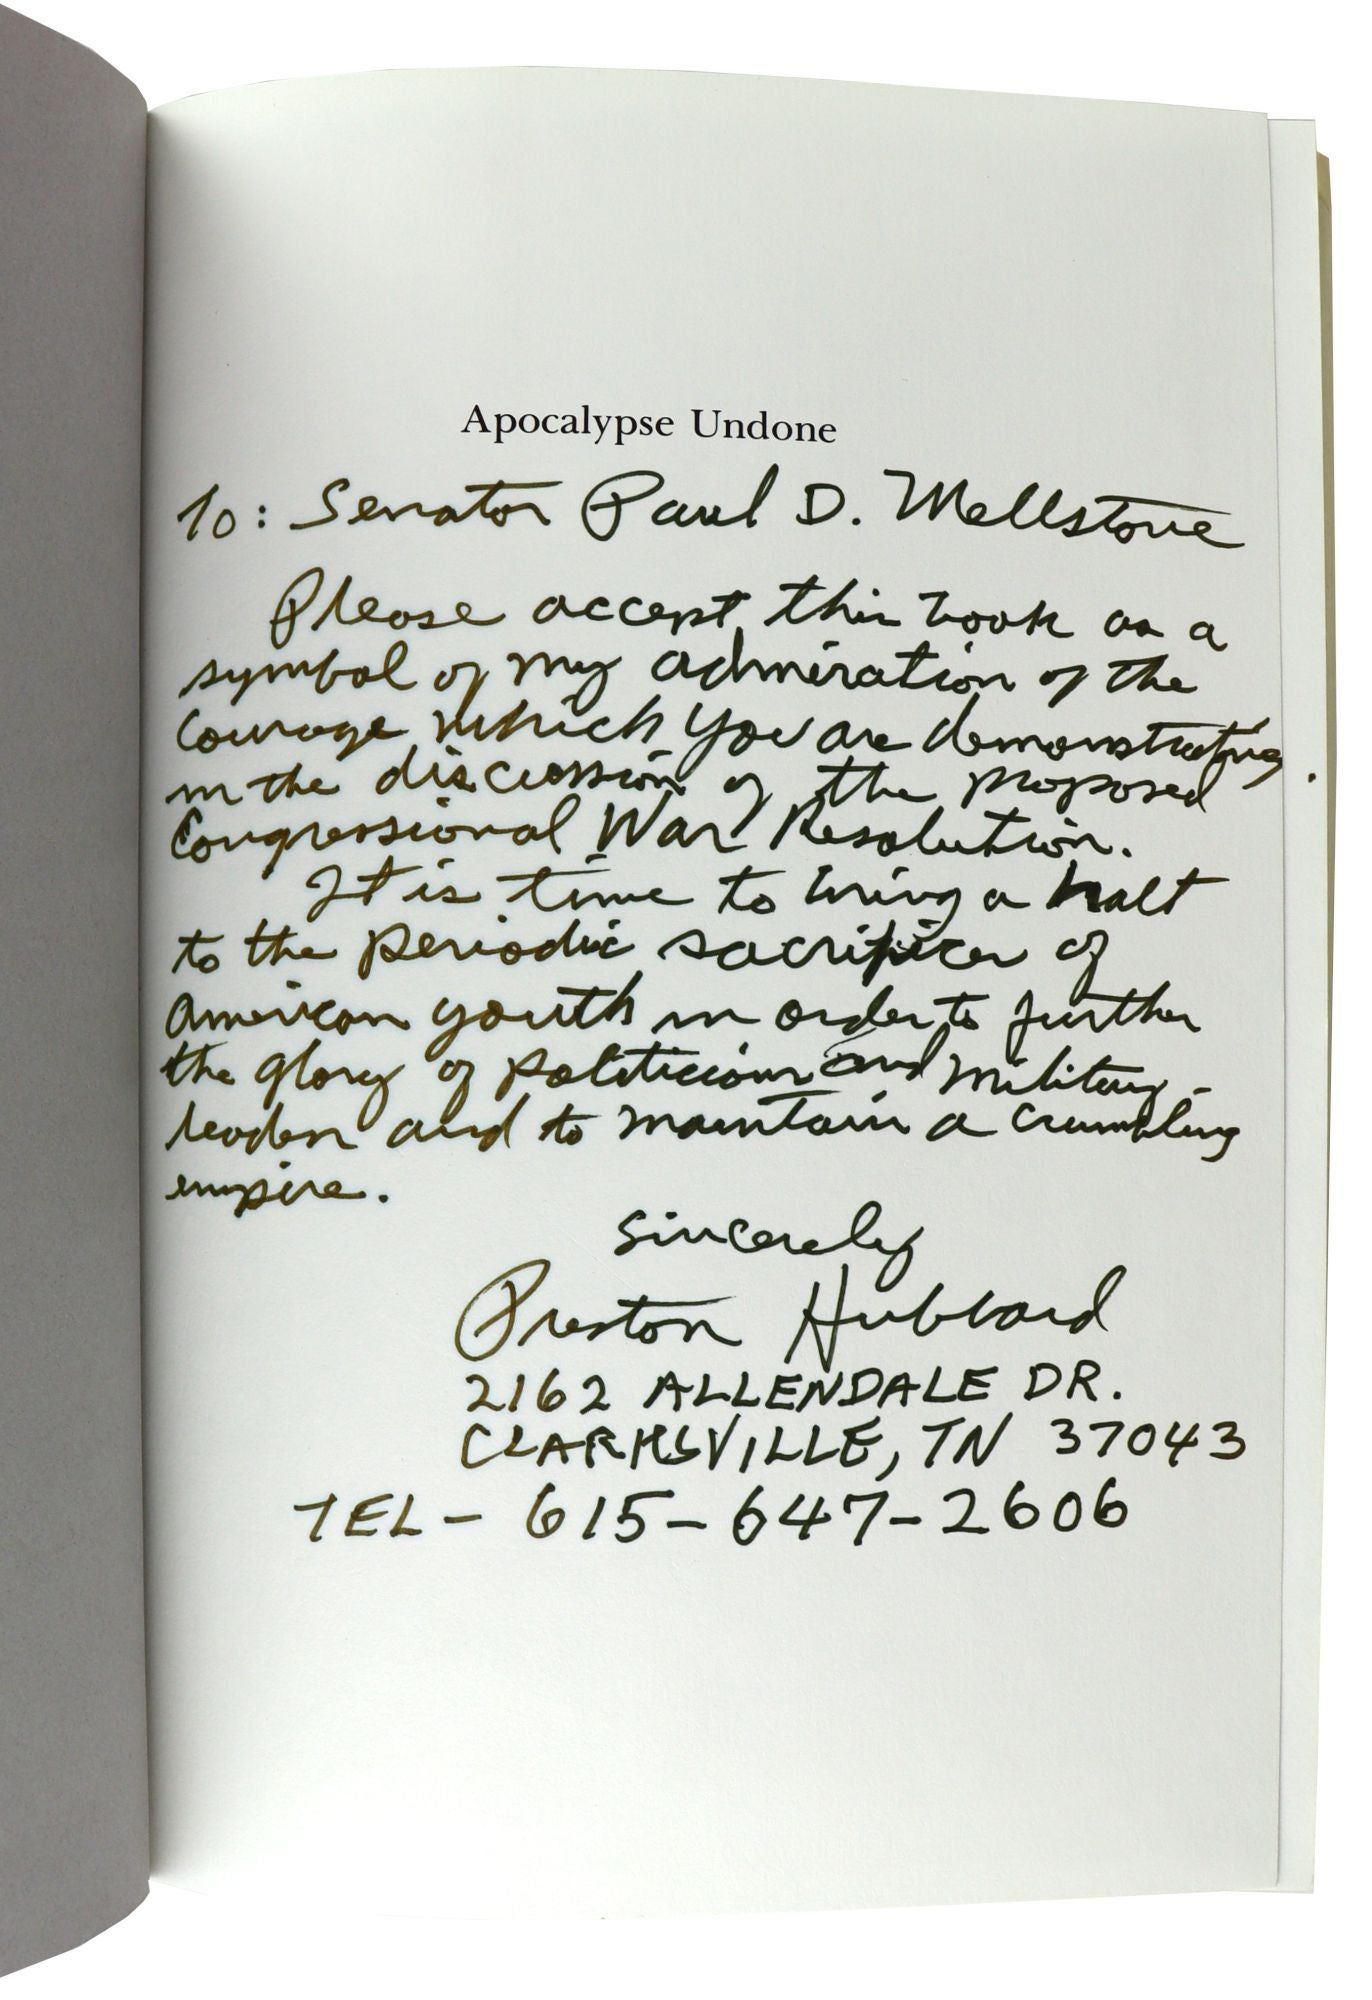 Apocalypse Undone
To: Senator Paul D. Wellstone
Please accept this book as a
symbol of my admiration of the
courage which you are demonstrating
in the discussion of the proposed
Congressional War Resolution.
It is time to bring a halt
to the periodic sacrifices of
American youth in order to further
the glory of politicians and military
leaders and to maintain a crumbling
empire.
Sincerely
Preston Hubbard
2162 ALLENDALE DR.
CLARKSVILLE, TN 37043
TEL - 615-647-2606